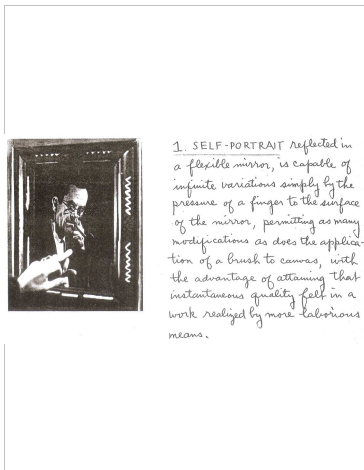 1. SELF-PORTRAIT reflected in
a flexible mirror, is capable of
infinite variations simply by the
pressure of a finger to the surface
of the mirror, permitting as many
modifications as does the applica-
tion of a brush to canvas, with
the advantage of attaining that
instantaneous quality felt in a
work realized by more laborious
means.